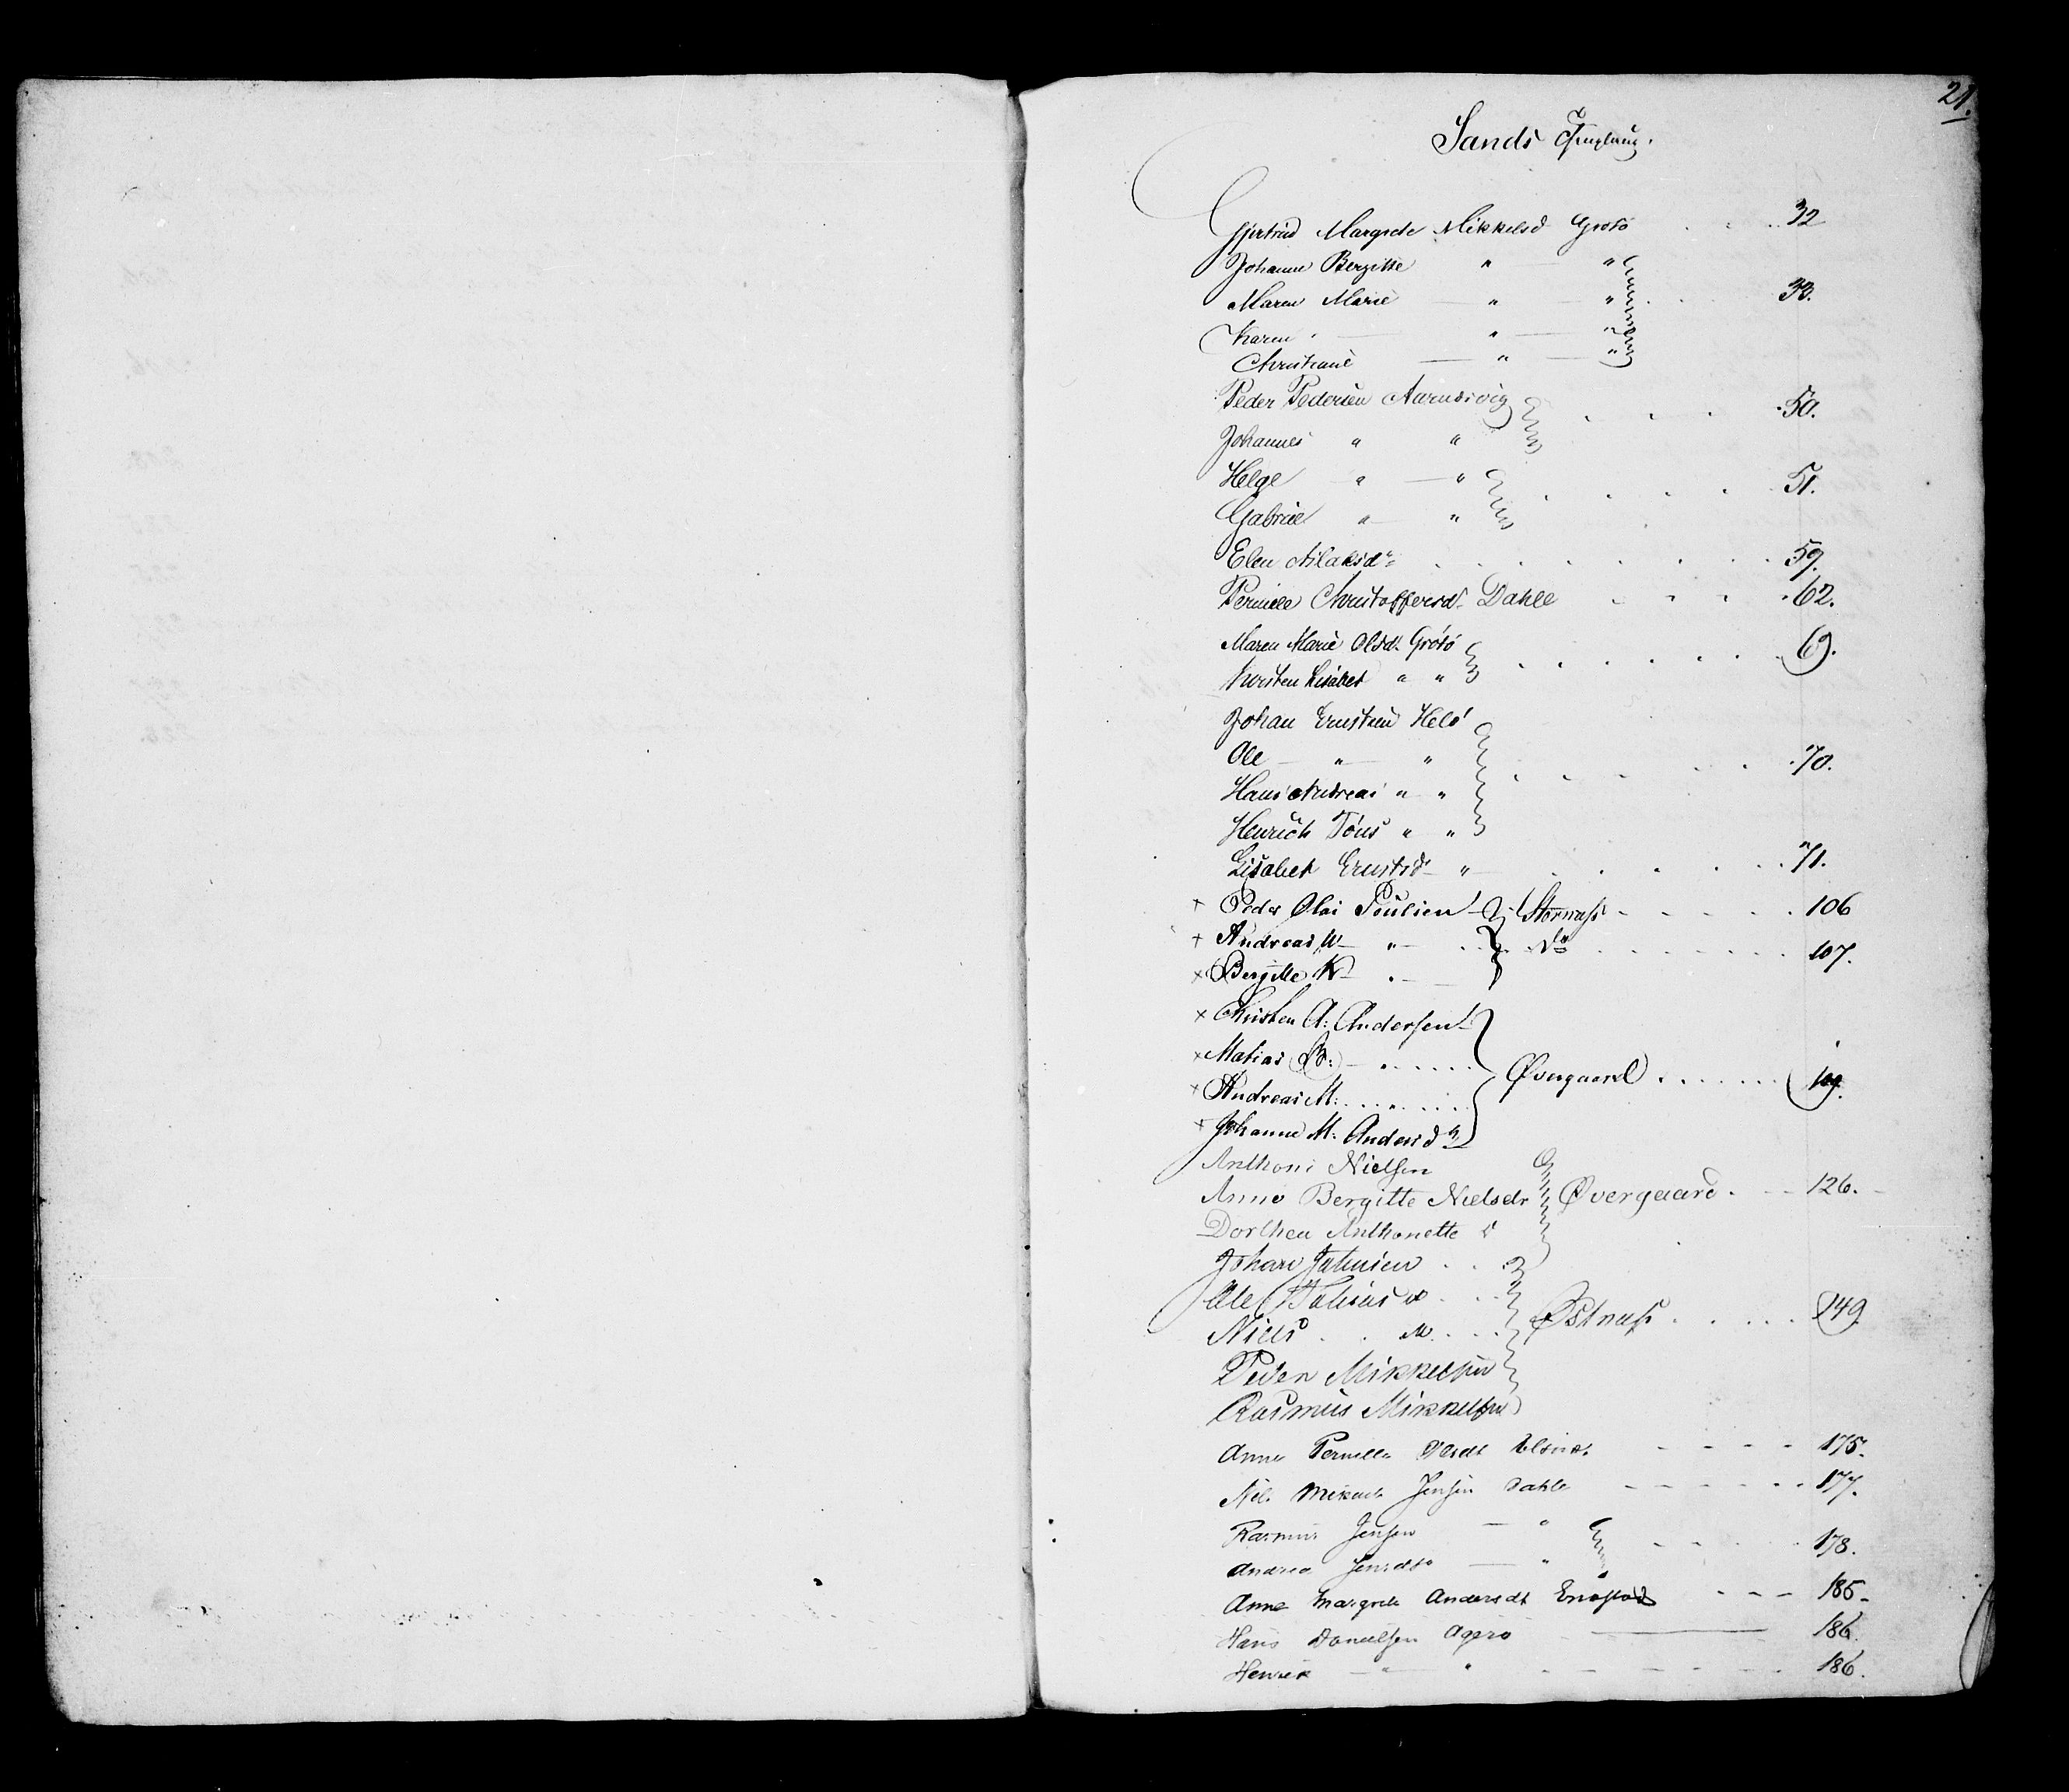 21.
Sands
Gjertrud Margrete Mikkelsd Grötö . . . 32
Johanne Bergitte " "
Maren Marie — " — " . . 33.
Karen — " — "
Christiane — " — "
Peder Pedersen Aarnesvig . . . 50.
Johannes " "
Helge " — " . . . . 51.
Gabriel " — "
Elen Nilsd . . . . . 59.
Pernille Christoffersd. Dahle . . . . 62.
Maren Marie Olsd. Grötö . . . . . . 69.
Kirsten Lisabet " "
Johan Ernstsen Helö
Ole — " — " . . . . . 70.
Hans Andreas " "
Henrich Töns " "
Lisabet Ernstsd — " — . . . . . 71.
+ Peder Olai Poulsen Stornass - - - - - 106
+ Andreas — " — . . . Do . . . . . . 107.
+ Bergitte — . —
+ Christen A: Andersen
+ Matias B: — " . . . . . Overgaard . . . . . . 109.
+ Andreas M: . . . " . . . .
+ Johanne M: Andersd
Anthoni Nielsen
Anne Bergitte Nielsdr Øvergaard . — 126.
Dorthea Anthonette d
Johan . . .
Ole Tobias . . . Østnass . . . . . 149
Niels . . M. . . .
Peder Mikkelsen
Rasmus Mikkelsen
Anne Pernille - - - - 175.
Nils Jensen Dahle - - - - - - 177.
Rasmus Jensen — " . . . . . 178.
Andrea Jensdtr — "
Anne Margrete Andersdt - - - 185.
Hans Danielsen Agerö — 186.
Henrik — " — " - - - - - - 186.